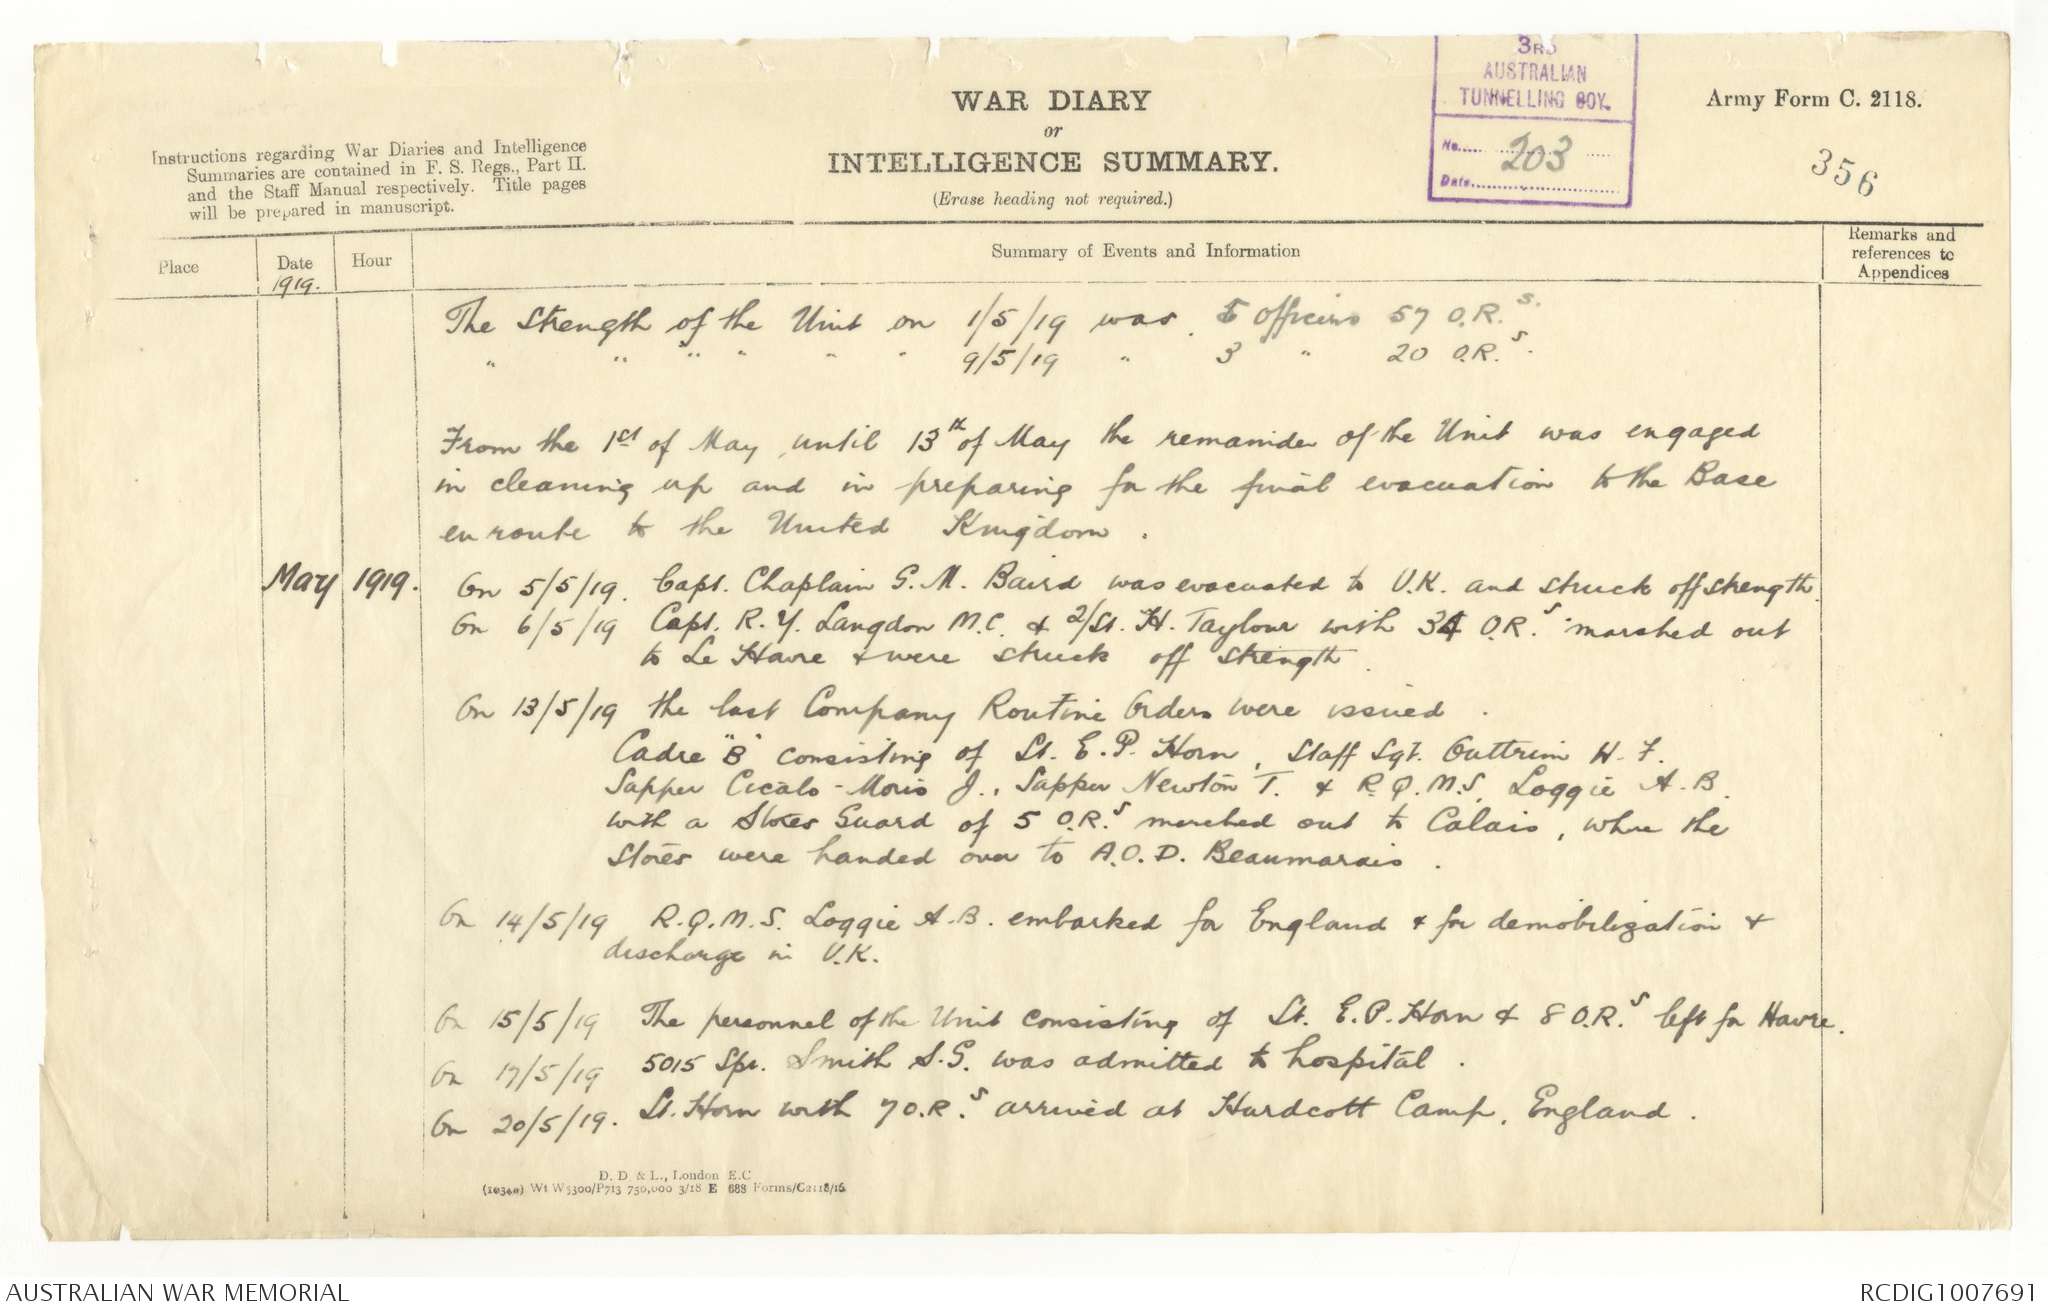 3RD
AUSTRALIAN
TUNNELLING COY.
No..... 203 .....
Date..........
WAR DIARY
or
INTELLIGENCE SUMMARY.
(Erase heading not required.)
Army Form C. 2118.
356
Instructions regarding War Diaries and Intelligence
Summaries are contained in F. S. Regs., Part II.
and the Staff Manual respectively. Title pages
will be prepared in manuscript.
Place
Date
1919.
Hour
Summary of Events and Information
Remarks and
references to
Appendices
The Strength of the Unit on 1/5/19 was 5 Officers 57 O.R.s.
" " " " " " 9/5/19 " 3 " 20 O.R.s.
From the 1st of May until 13th of May the remainder of the Unit was engaged
in cleaning up and in preparing for the final evacuation to the Base
en route to the United Kingdom.
May 1919.
On 5/5/19. Capt. Chaplain G. M. Baird was evacuated to U.K. and struck off strength.
On 6/5/19 Capt. R. Y. Langdon M.C. & 2/Lt. H. Taylour with 34 O.R.s marched out
to Le Havre & were struck off strength.
On 13/5/19 the last Company Routine Orders were issued.
Cadre "B" consisting of Lt. E. P. Horn, Staff Sgt. Outtrim H. F.
Sapper Cicalo-Moris J., Sapper Newton T. & R.Q.M.S. Loggie A. B.
with a Stores Guard of 5 O.R.s marched out to Calais, where the
stores were handed over to A.O.D. Beaumarais.
On 14/5/19 R.Q.M.S. Loggie A. B. embarked for England & for demobilization &
discharge in U.K.
On 15/5/19 The personnel of the Unit consisting of Lt. E. P. Horn & 8 O.R.s left for Havre.
On 17/5/19 5015 Spr. Smith S. G. was admitted to hospital.
On 20/5/19. Lt. Horn with 7 O.R.s arrived at Hurdcott Camp, England.
D. D. & L., London E.C
(10340) Wt W5300/P713 750,000 3/18 E 688 Forms/C2118/16
AUSTRALIAN WAR MEMORIAL
RCDIG1007691